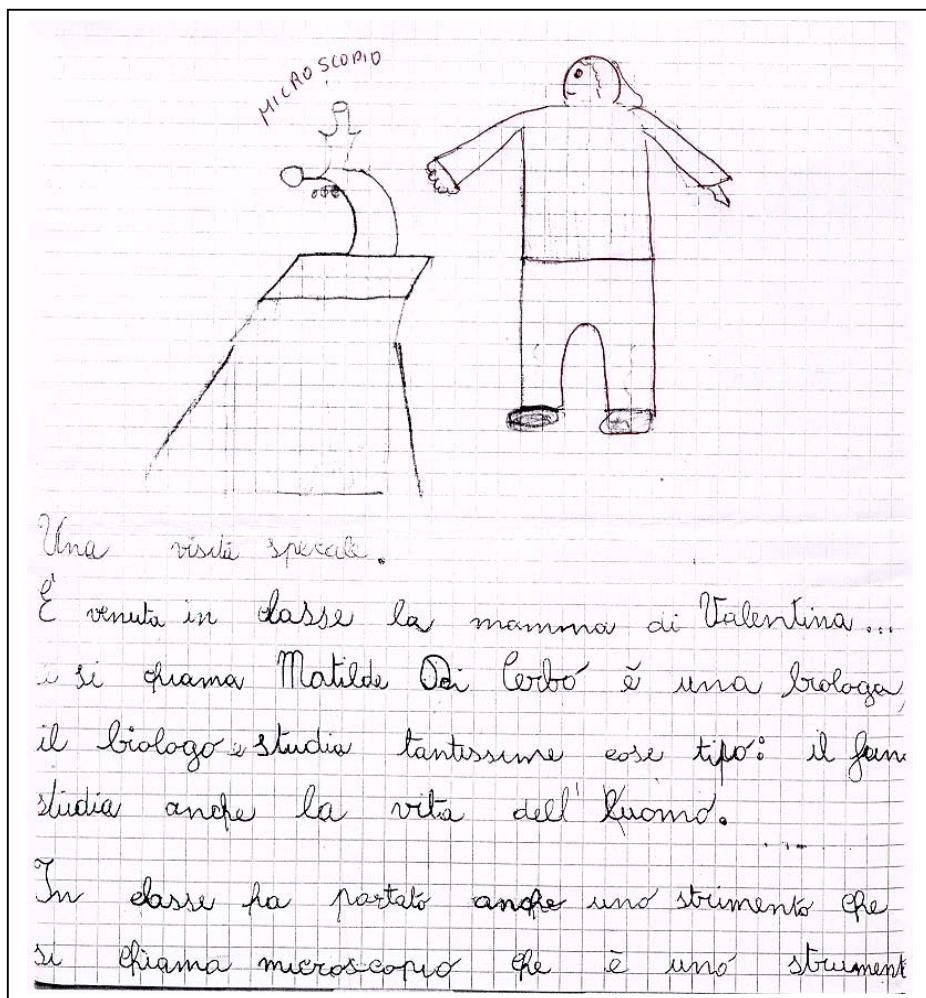 MICROSCOPIO
Una visita specale.
È venuta in classe la mamma di Valentina...
si chiama Matilde Di Cerbo è una biologa,
il biologo studia tantissime cose tipo: il fun
studia anche la vita dell'uomo.
In classe ha portato anche uno strimento che
si chiama microscopio che è uno strument